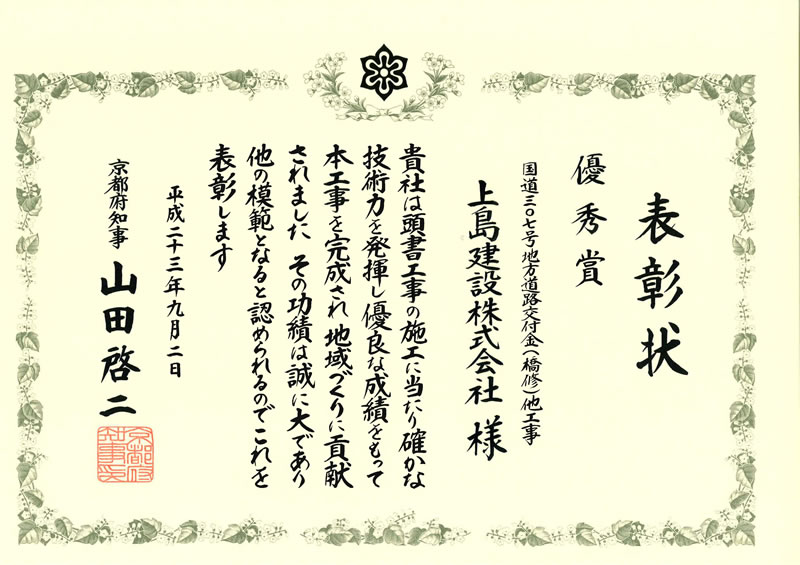 表彰状
優秀賞
国道三〇七号地方道路交付金(橋修)他工事
上島建設株式会社 様
貴社は頭書工事の施工に当たり確かな
技術力を発揮し優良な成績をもって
本工事を完成され 地域づくりに貢献
されました その功績は誠に大であり
他の模範となると認められるのでこれを
表彰します
平成二十三年九月二日
京都府知事 山田啓二
京都府
知事之印